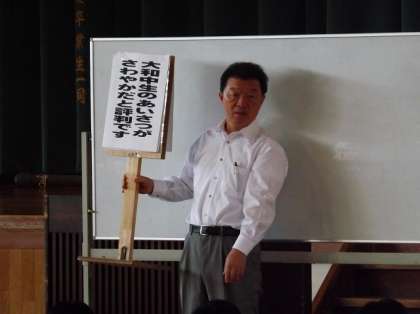 大和中生のあいさつが
さわやかだと評判です
卒業生一同